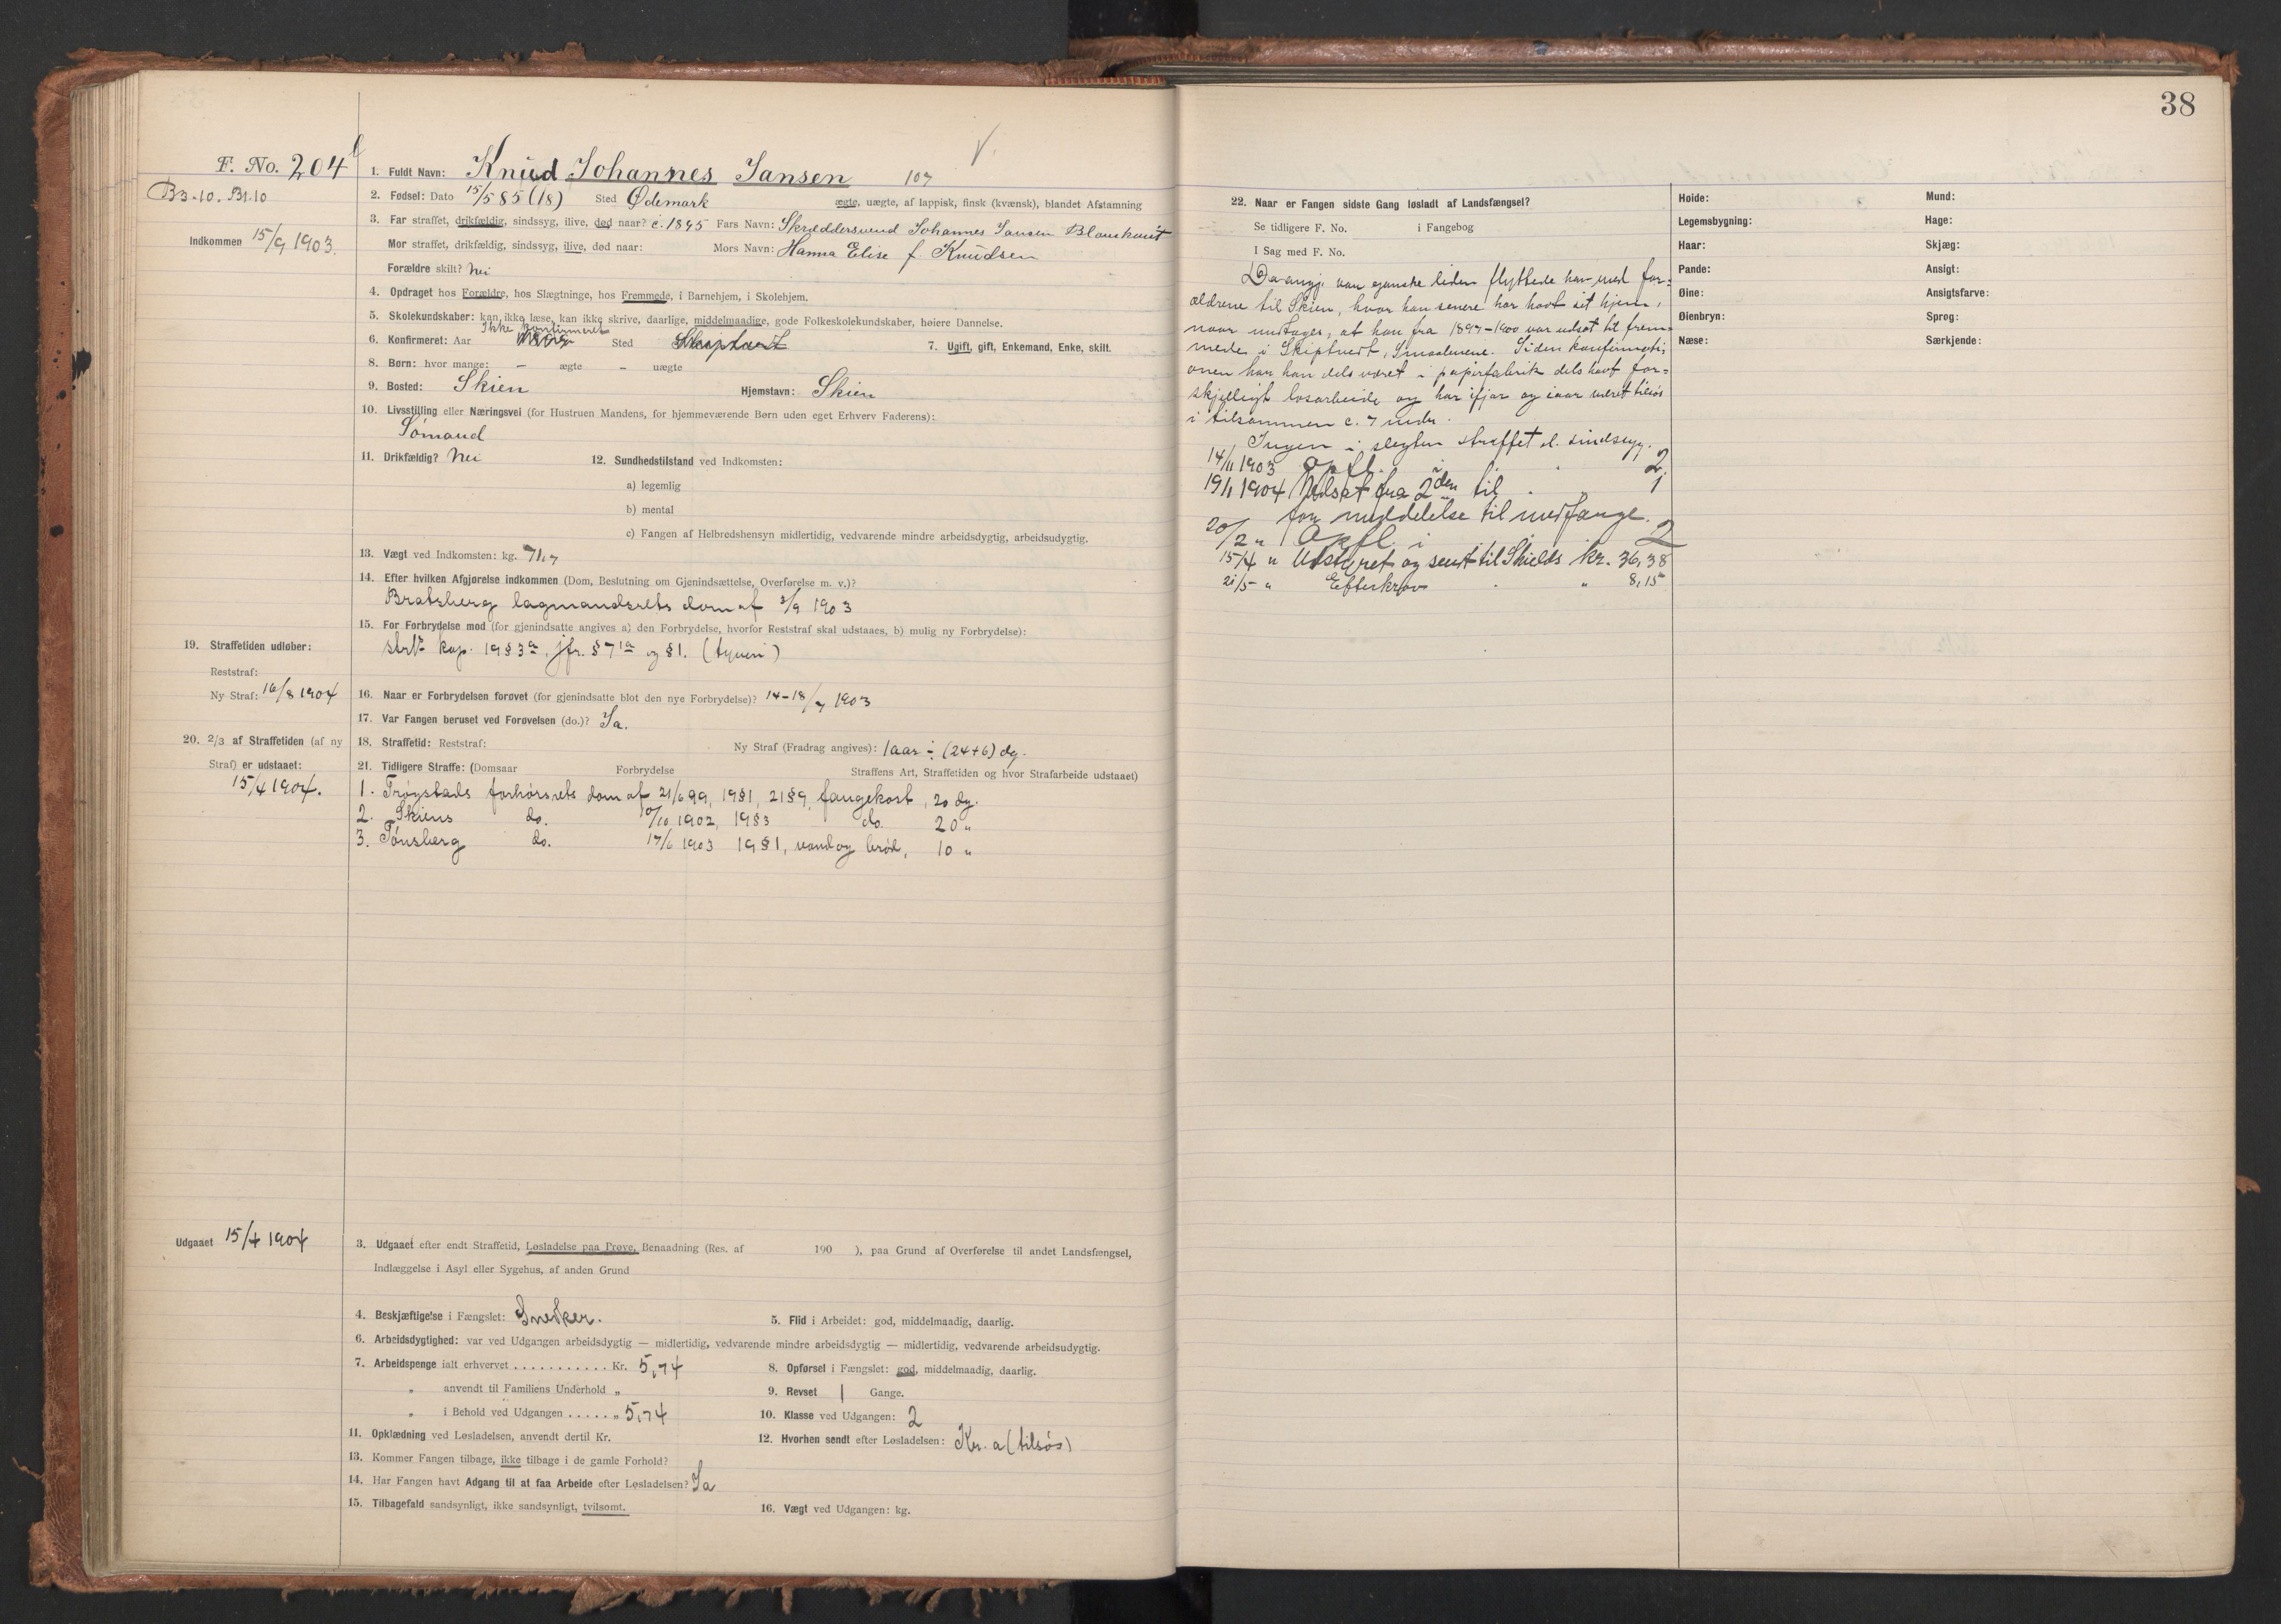 38
F. No. 204
B3-10. B1.10
Indkommen 15/9 1903.
1. Fuldt Navn: Knud Johannes Jansen 107
2. Fødsel: Dato 15/5 85 (18) Sted Ødemark ægte, uægte, af lappisk, finsk (kvænsk), blandet Afstamning
3. Far straffet, drikfældig, sindssyg, ilive, død naar? c. 1895 Fars Navn: Skræddersvend Johannes Jansen
Mor straffet, drikfældig, sindssyg, ilive, død naar: Mors Navn: Hanna Elise f. Knudsen
Forældre skilt? Nei
4. Opdraget hos Forældre, hos Slægtninge, hos Fremmede, i Barnehjem, i Skolehjem.
5. Skolekundskaber: kan ikke læse, kan ikke skrive, daarlige, middelmaadige, gode Folkeskolekundskaber, høiere Dannelse.
Ikke konfirmeret
6. Konfirmeret: Aar Sted Skiptvedt 7. Ugift, gift, Enkemand, Enke, skilt.
8. Børn: hvor mange: – ægte – uægte
9. Bosted: Skien Hjemstavn: Skien
10. Livsstilling eller Næringsvei (for Hustruen Mandens, for hjemmeværende Børn uden eget Erhverv Faderens):
Sømand
11. Drikfældig? Nei 12. Sundhedstilstand ved Indkomsten:
a) legemlig
b) mental
c) Fangen af Helbredshensyn midlertidig, vedvarende mindre arbeidsdygtig, arbeidsudygtig.
13. Vægt ved Indkomsten: kg. 71,7
14. Efter hvilken Afgjørelse indkommen (Dom, Beslutning om Gjenindsættelse, Overførelse m. v.)?
Bratsberg lagmandsrets dom af 2/9 1903
15. For Forbrydelse mod (for gjenindsatte angives a) den Forbrydelse, hvorfor Reststraf skal udstaaes, b) mulig ny Forbrydelse):
kap. 19 § 3, jfr. § 7 og § 1. (tyveri)
19. Straffetiden udløber:
Reststraf:
Ny Straf: 16/8 1904
16. Naar er Forbrydelsen forøvet (for gjenindsatte blot den nye Forbrydelse)? 14–18/7 1903
17. Var Fangen beruset ved Forøvelsen (do.)? Ja.
18. Straffetid: Reststraf: Ny Straf (Fradrag angives): 1 aar ÷ (24+6) dg.
20. 2/3 af Straffetiden (af ny
Straf) er udstaaet:
15/4 1904.
21. Tidligere Straffe: (Domsaar Forbrydelse Straffens Art, Straffetiden og hvor Strafarbeide udstaaet)
1. Trøgstads forhørsrets dom af 21/6 99, 19§1, 21§9, fangekost, 20 dg.
2. Skiens do. 10/10 1902, 19§3 do. 20 "
3. Tønsberg do. 17/6 1903 19§1, vand og brød, 10 "
Udgaaet 15/4 1904
3. Udgaaet efter endt Straffetid, Løsladelse paa Prøve, Benaadning (Res. af 190 ), paa Grund af Overførelse til andet Landsfængsel,
Indlæggelse i Asyl eller Sygehus, af anden Grund
4. Beskjæftigelse i Fængslet: Snedker. 5. Flid i Arbeidet: god, middelmaadig, daarlig.
6. Arbeidsdygtighed: var ved Udgangen arbeidsdygtig — midlertidig, vedvarende mindre arbeidsdygtig — midlertidig, vedvarende arbeidsudygtig.
7. Arbeidspenge ialt erhvervet . . . . . . . . . . . Kr. 5,74 8. Opførsel i Fængslet: god, middelmaadig, daarlig.
" anvendt til Familiens Underhold " 9. Revset 1 Gange.
" i Behold ved Udgangen . . . . . " 5,74 10. Klasse ved Udgangen: 2
11. Opklædning ved Løsladelsen, anvendt dertil Kr. 12. Hvorhen sendt efter Løsladelsen: Kr.a (tilsøs)
13. Kommer Fangen tilbage, ikke tilbage i de gamle Forhold?
14. Har Fangen havt Adgang til at faa Arbeide efter Løsladelsen? Ja
15. Tilbagefald sandsynligt, ikke sandsynligt, tvilsomt. 16. Vægt ved Udgangen: kg.
22. Naar er Fangen sidste Gang løsladt af Landsfængsel?
Se tidligere F. No. i Fangebog
I Sag med F. No.
Da angj. var ganske liden flyttede han med for-
ældrene til Skien, hvor han senere har havt sit hjem,
naar undtages, at han fra 1897–1900 var udsat til frem-
mede i Skiptvedt, Smaalenene. Siden konfirmati-
onen har han dels været i papirfabrik dels havt for-
skjelligt løsarbeide og har ifjor og iaar været tilsøs
i tilsammen c. 7 mdr.
Ingen i slegten straffet el. sindssyg.
14/11 1903 Opfl. i 2.
19/1 1904 Nedsat fra 2den til 1
for meddelelse til medfange.
20/2 " Opfl. i 2
15/4 " Udstyret og sendt til Kr. 36,38
21/5 " Efterkrav " 8,15
Høide: Mund:
Legemsbygning: Hage:
Haar: Skjæg:
Pande: Ansigt:
Øine: Ansigtsfarve:
Øienbryn: Sprog:
Næse: Særkjende: